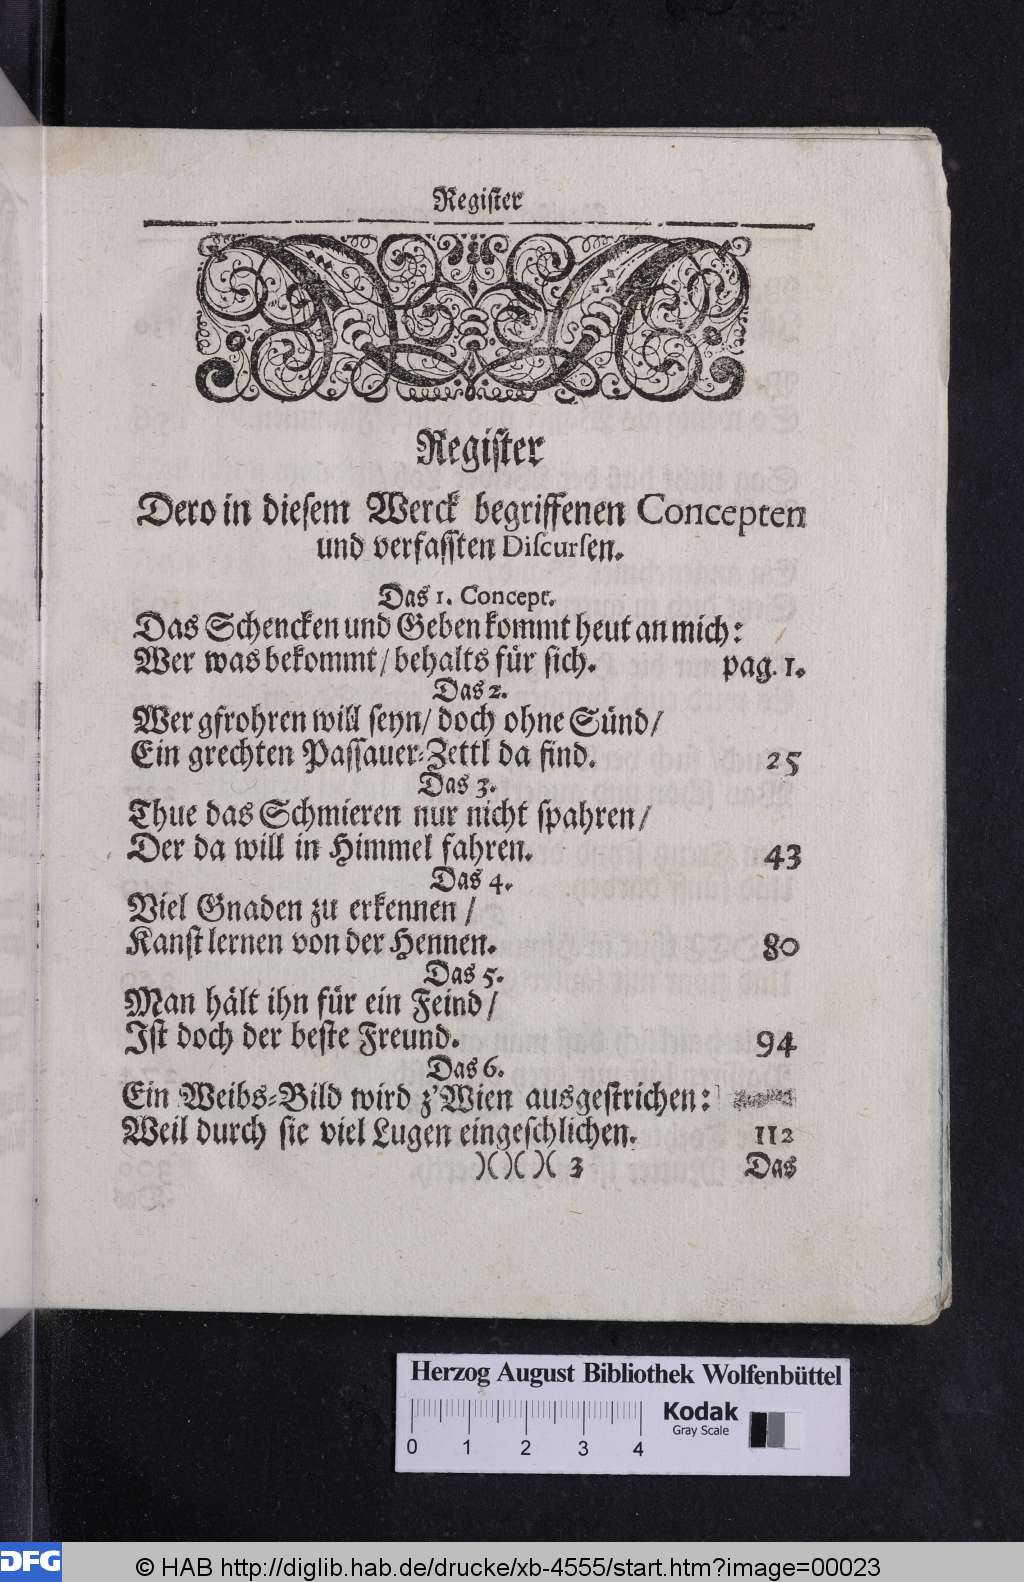 Register
Register
Dero in diesem Werck begriffenen Concepten
und verfassten Discursen.
Das 1. Concept.
Das Schencken und Geben kommt heut an mich:
Wer was bekommt / behalts für sich. pag. 1.
Das 2.
Wer gfrohren will seyn / doch ohne Sünd /
Ein grechten Passauer-Zettl da find. 25
Das 3.
Thue das Schmieren nur nicht spahren /
Der da will in Himmel fahren. 43
Das 4.
Viel Gnaden zu erkennen /
Kanst lernen von der Hennen. 80
Das 5.
Man hält ihn für ein Feind /
Ist doch der beste Freund. 94
Das 6.
Ein Weibs-Bild wird z'Wien ausgestrichen:
Weil durch sie viel Lugen eingeschlichen. 112
)()()( 3 Das
Herzog August Bibliothek Wolfenbüttel
Kodak
Gray Scale
0 1 2 3 4
DFG
© HAB http://diglib.hab.de/drucke/xb-4555/start.htm?image=00023